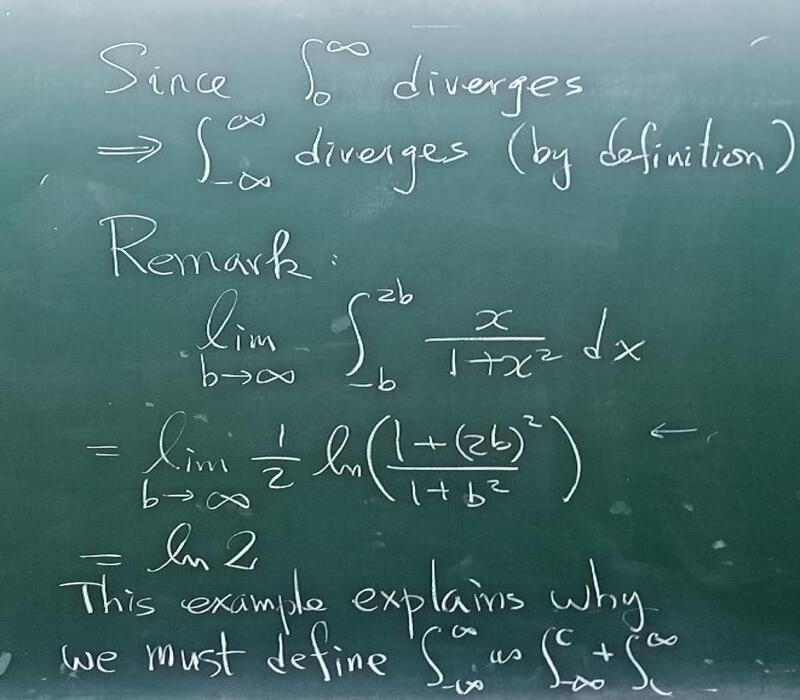 Since ∫₀^∞ diverges
⟹ ∫_{-∞}^∞ diverges (by definition)
Remark:
lim_{b→∞} ∫_{-b}^{2b} x/(1+x²) dx
= lim_{b→∞} 1/2 ln((1+(2b)²)/(1+b²)) ←
= ln 2
This example explains why
we must define ∫_{-∞}^∞ as ∫_{-∞}^c + ∫_c^∞